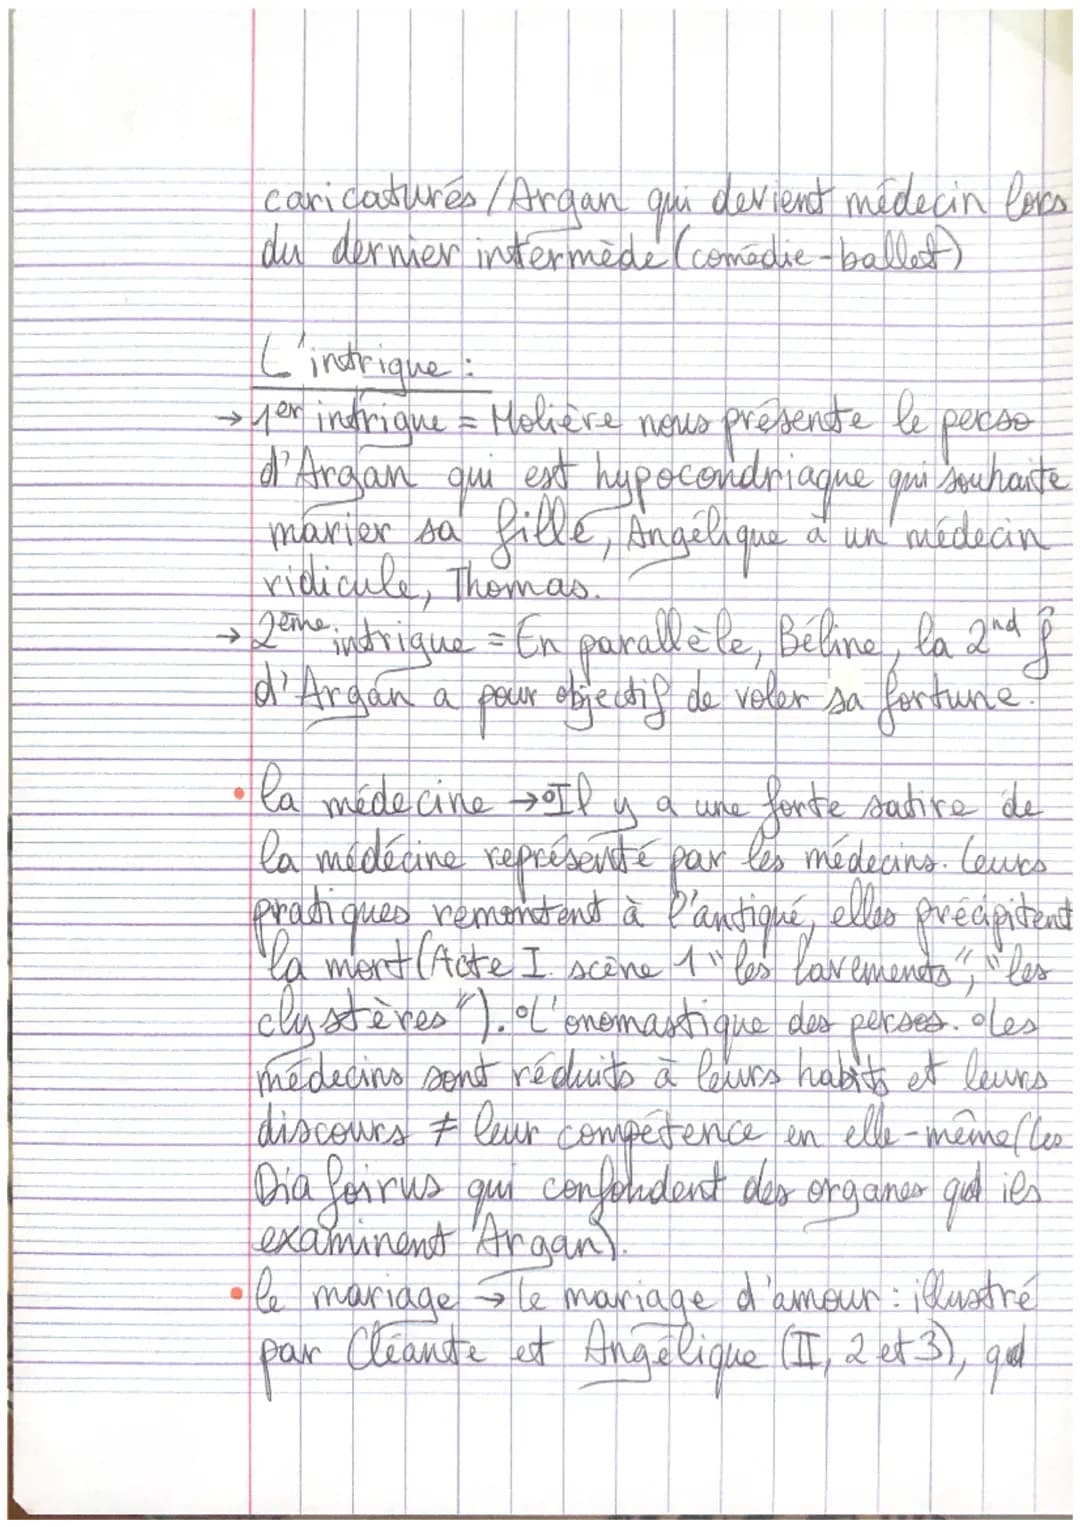 caricaturés / Argan qui devient médecin lors
du dernier intermède (comédie-ballet)
L'intrigue :
→ 1er intrigue = Molière nous présente le perso
d'Argan qui est hypocondriaque qui souhaite
marier sa fille, Angélique à un médecin
ridicule, Thomas.
→ 2ème intrigue = En parallèle, Béline, la 2nd f
d'Argan a pour objectif de voler sa fortune.
• la médecine → °Il y a une forte satire de
la médécine représenté par les médecins. Leurs
pratiques remontent à l'antiqué, elles précipitent
la mort (Acte I scène 1 "les lavements", "les
clystères"). °L'onomastique des persos. °Les
médecins sont réduits à leurs habits et leurs
discours ≠ leur compétence en elle-même (les
Diafoirus qui confondent des organes qd ils
examinent Argan).
• le mariage → le mariage d'amour : illustré
par Cléante et Angélique (II, 2 et 3), qd